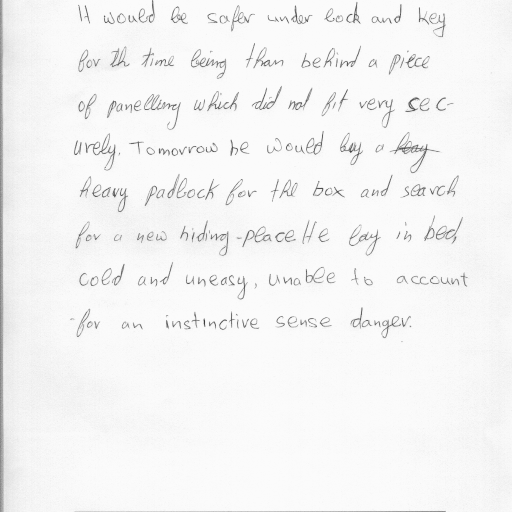 It would be safer under lock and key
for th time being than behind a piece
of panelling which did not fit very sec-
urely. Tomorrow he would buy a
heavy padlock for the box and search
for a new hiding-place He lay in bed,
cold and uneasy, unable to account
for an instinctive sense danger.